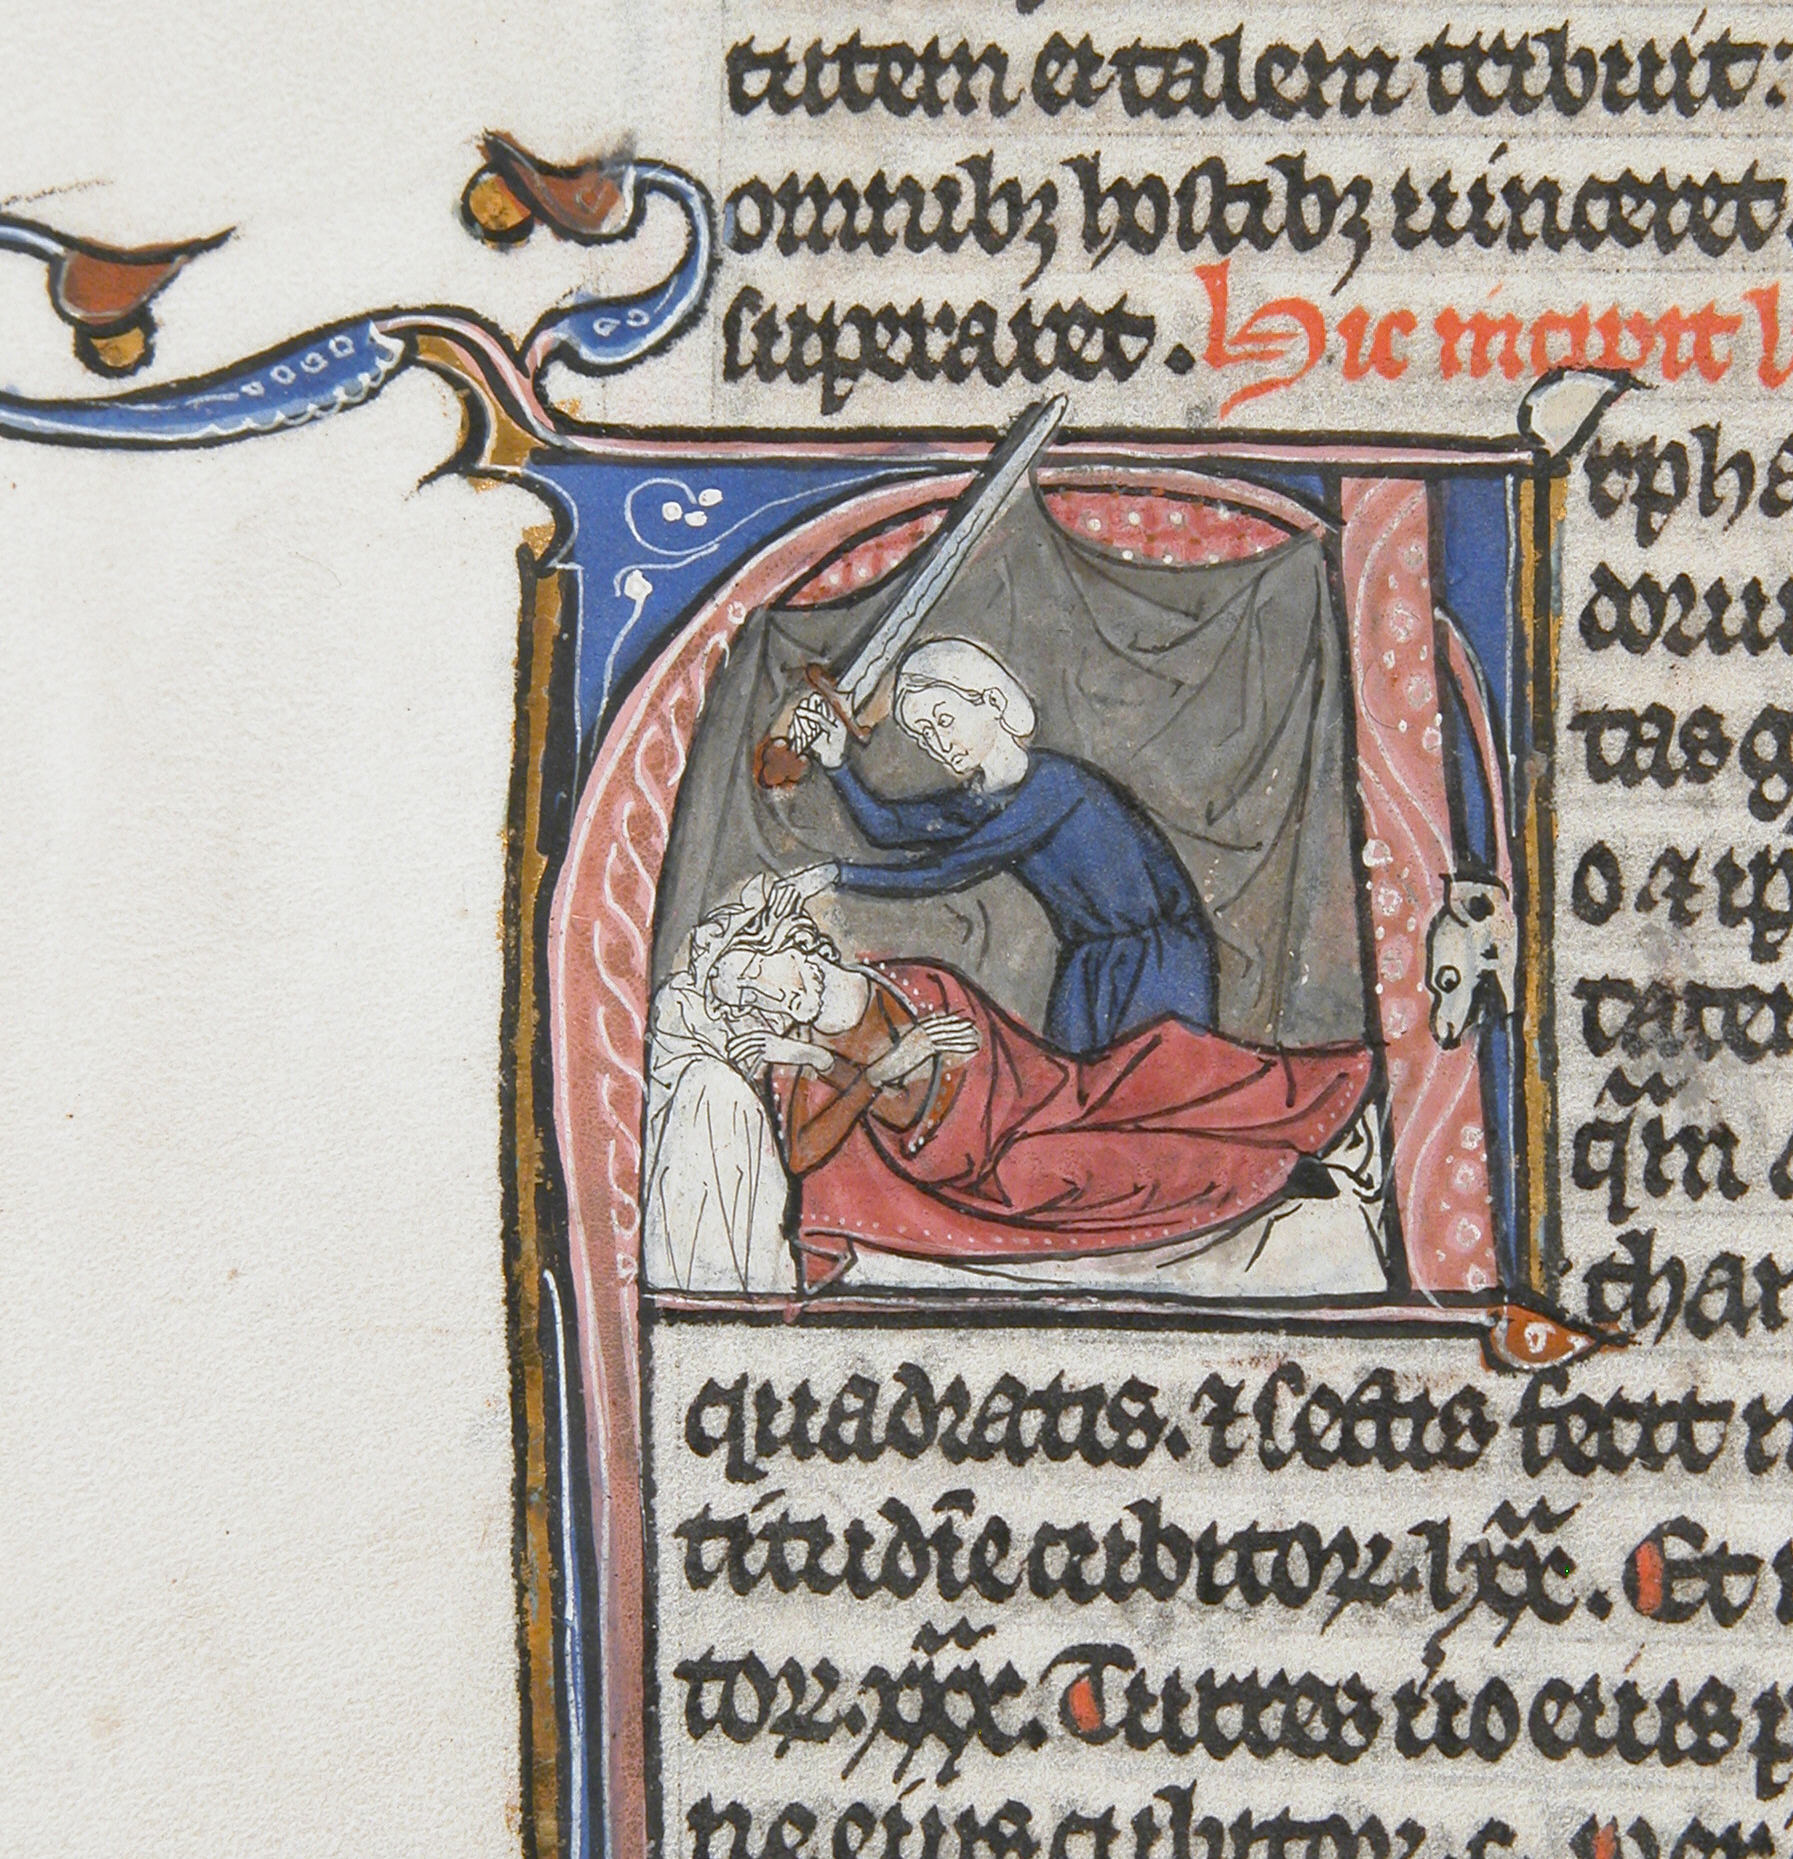 tutem et talem tribuit:
omnibꝫ hostibꝫ uinceret
superaret. Hic incipit l
A
rpha
doru
tas g
o ⁊ ip
tatem
q̃m
char
quadratis. ⁊ sectis fecit
titudīe cubitoꝝ. lxx. Et
toꝝ. xxx. Turres uo eius p
ne eius cubitoꝝ. c.